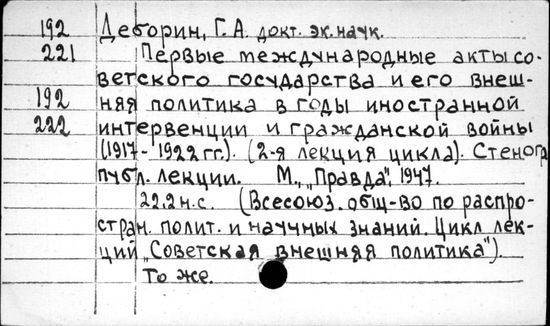 192 Деборин, Г.А. докт. эк. наук.
221 Первые международные акты со-
ветского государства и его внеш-
192 няя политика в годы иностранной
222 интервенции и гражданской войны
(1917-1922 гг.). (2-я лекция цикла). Стеногр.
публ. лекции. М., „Правда", 1947.
22.2 н.с. (Всесоюз. общ-во по распро-
стран. полит. и научных знаний. Цикл лек-
ций „Советская внешняя политика").
То же.